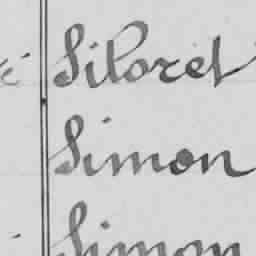 Siloret
Simon
Simon